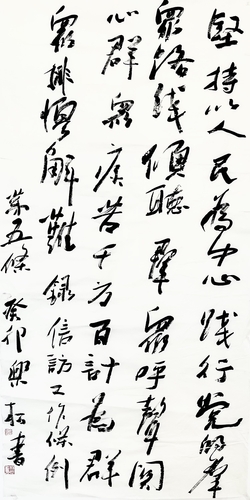 堅持以人民為中心踐行党的羣
眾路线傾聽羣眾呼聲関
心群眾疾苦千方百計為群
眾排憂解難 錄信訪工作條例
第五條 癸卯興松書